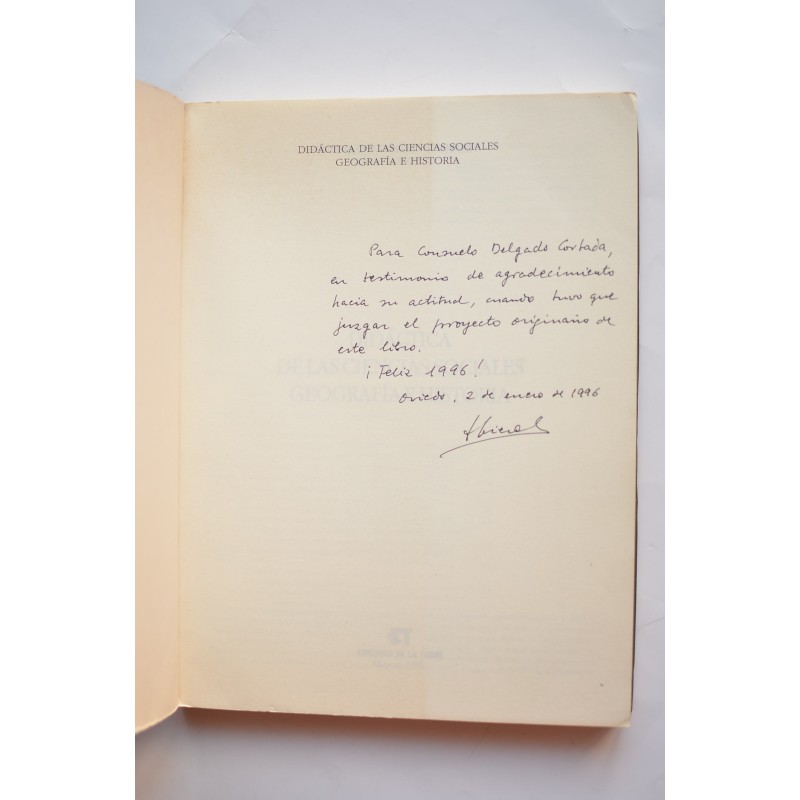 DIDÁCTICA DE LAS CIENCIAS SOCIALES
GEOGRAFÍA E HISTORIA
Para Consuelo Delgado Cortada,
en testimonio de agradecimiento
hacia su actitud, cuando tuvo que
juzgar el proyecto originario de
este libro.
¡Feliz 1996!
Oviedo, 2 de enero de 1996
DIDÁCTICA
DE LAS CIENCIAS SOCIALES
GEOGRAFÍA E HISTORIA